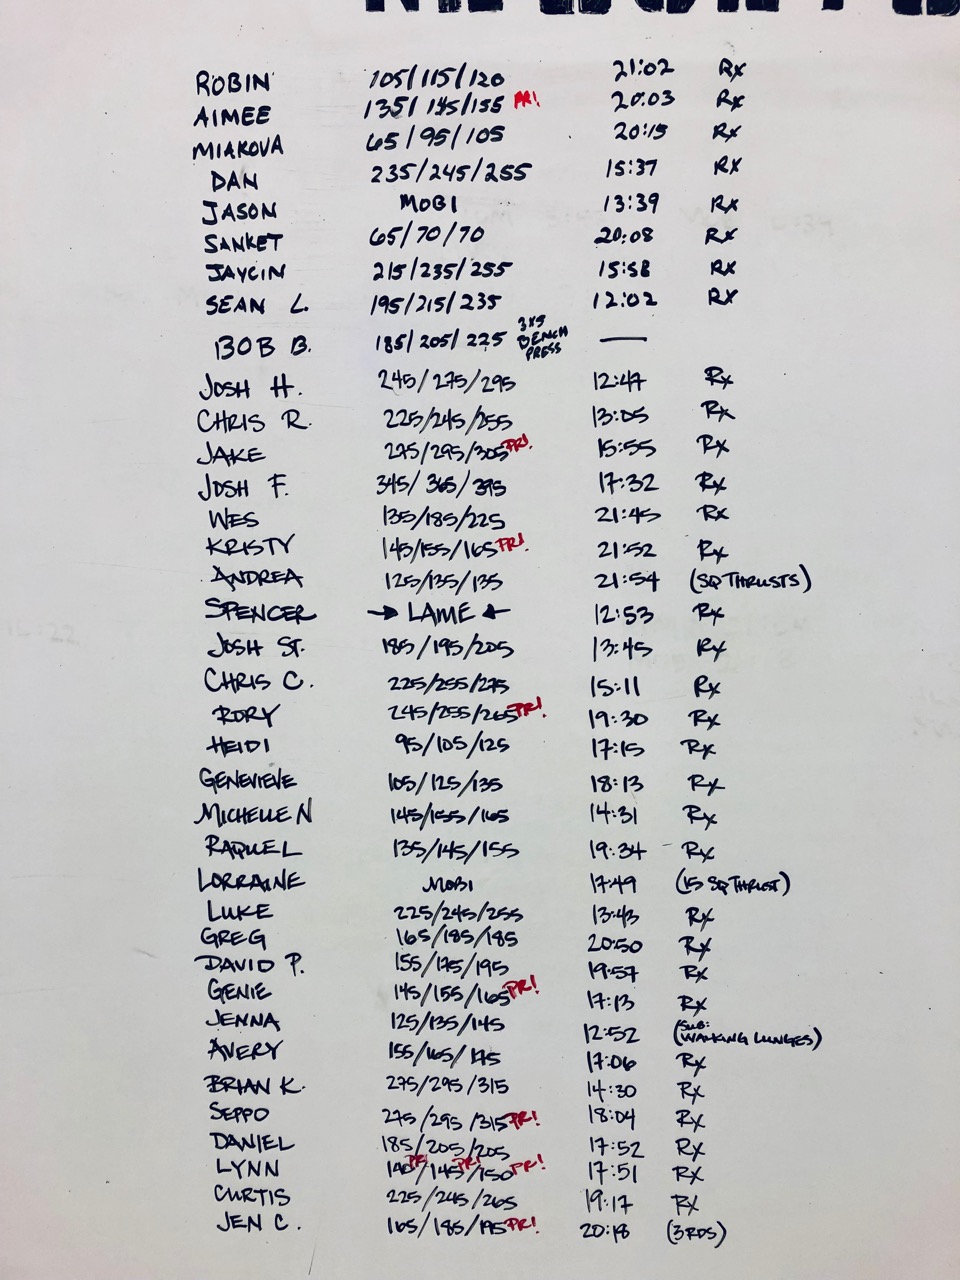 ROBIN 105/115/120 21:02 Rx
AIMEE 135/145/155 PR! 20:03 Rx
MIAKOVA 65/95/105 20:15 Rx
DAN 235/245/255 15:37 Rx
JASON MOBI 13:39 Rx
SANKET 65/70/70 20:08 Rx
JAYCIN 215/235/255 15:58 Rx
SEAN L. 195/215/235 12:02 Rx
BOB B. 185/205/225 3x5 BENCH PRESS —
JOSH H. 245/275/295 12:47 Rx
CHRIS R. 225/245/255 13:05 Rx
JAKE 275/295/305 PR! 15:55 Rx
JOSH F. 345/365/395 17:32 Rx
WES 135/185/225 21:45 Rx
KRISTY 145/155/165 PR! 21:52 Rx
ANDREA 125/135/135 21:54 (SQ THRUSTS)
SPENCER → LAME ← 12:53 Rx
JOSH ST. 185/195/205 13:45 Rx
CHRIS C. 225/255/275 15:11 Rx
RORY 245/255/265 PR! 19:30 Rx
HEIDI 95/105/125 17:15 Rx
GENEVIEVE 105/125/135 18:13 Rx
MICHELLE N 145/155/165 14:31 Rx
RAQUEL 135/145/155 19:34 Rx
LORRAINE MOBI 17:49 (15 SQ THRUST)
LUKE 225/245/255 13:43 Rx
GREG 165/185/185 20:50 Rx
DAVID P. 155/175/195 19:57 Rx
GENIE 145/155/165 PR! 17:13 Rx
JENNA 125/135/145 12:52 (SUB: WALKING LUNGES)
AVERY 155/165/175 17:06 Rx
BRIAN K. 275/295/315 14:30 Rx
SEPPO 275/295/315 PR! 18:04 Rx
DANIEL 185/205/205 17:52 Rx
LYNN 140 PR!/145 PR!/150 PR! 17:51 Rx
CURTIS 225/245/265 19:17 Rx
JEN C. 165/185/195 PR! 20:18 (3RDS)